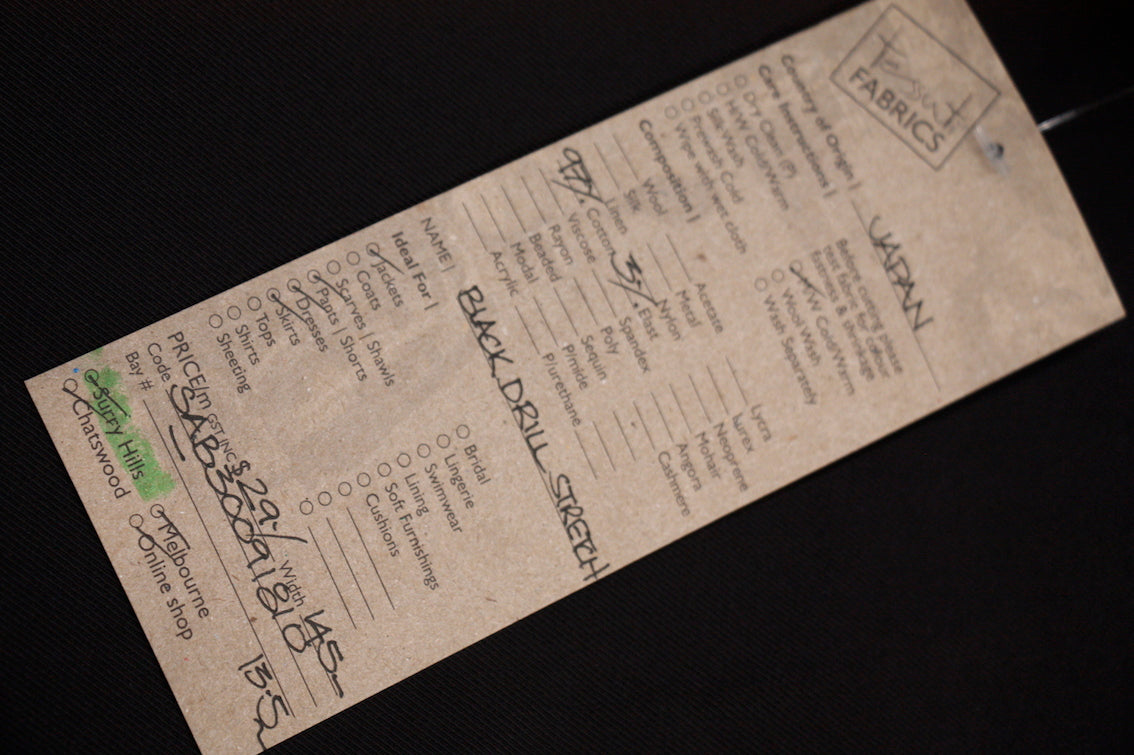 Tessuti
FABRICS
Country of Origin | JAPAN
Care Instructions |
Before cutting please
test fabric for colour
fastness & shrinkage
Dry Clean (P)
H/W Cold/Warm
Silk Wash
Prewash Cold
Wipe with wet cloth
M/W Cold/Warm
Wool Wash
Wash Separately
Composition |
Wool
Silk
Linen
97% Cotton
Viscose
Rayon
Beaded
Modal
Acrylic
Acetate
Metal
Nylon
3% Elast
Spandex
Poly
Sequin
P/mide
P/urethane
Lycra
Lurex
Neoprene
Mohair
Angora
Cashmere
NAME | BLACK DRILL STRETCH
Ideal For |
Jackets
Coats
Scarves | Shawls
Pants | Shorts
Dresses
Skirts
Tops
Shirts
Sheeting
Bridal
Lingerie
Swimwear
Lining
Soft Furnishings
Cushions
PRICE/m GST INC $29.- Width 145-
Code SAB30091810
Bay # 13.5
Surry Hills
Chatswood
Melbourne
Online shop